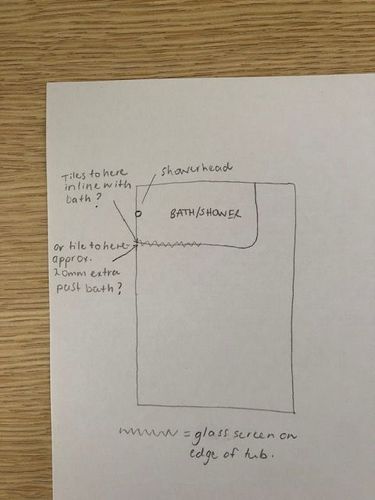 showerhead
Tiles to here
inline with
bath?
BATH/SHOWER
or tile to here
approx.
20mm extra
past bath?
= glass screen on
edge of tub.